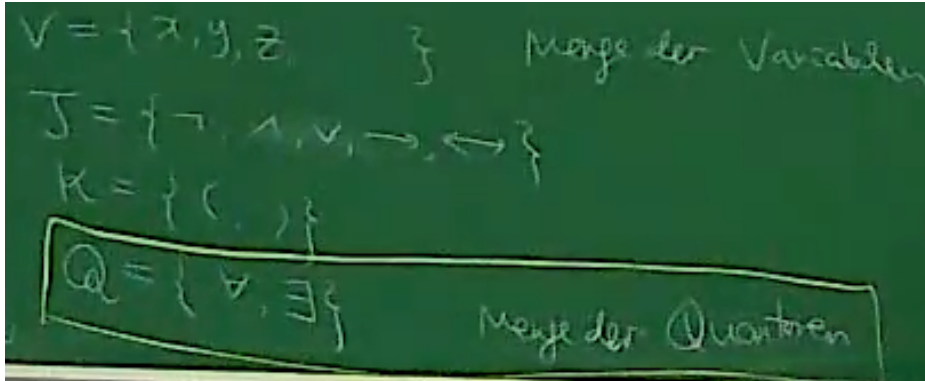 V = { x, y, z, } Menge der Variablen
J = { ¬, ∧, ∨, →, ↔ }
K = { (, ) }
Q = { ∀, ∃ } Menge der Quantoren